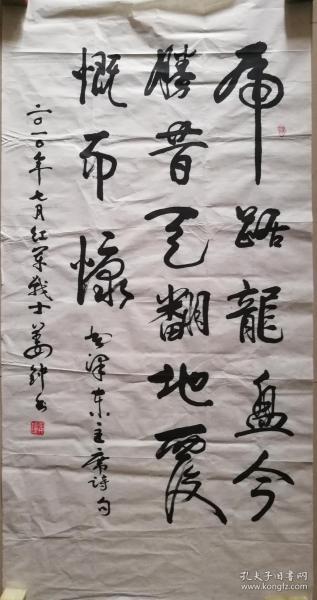 虎踞龍盤今
勝昔天翻地覆
慨而慷
毛澤東主席詩句
二〇一〇年七月红军战士姜鈡书
孔夫子旧书网
www.kongfz.com